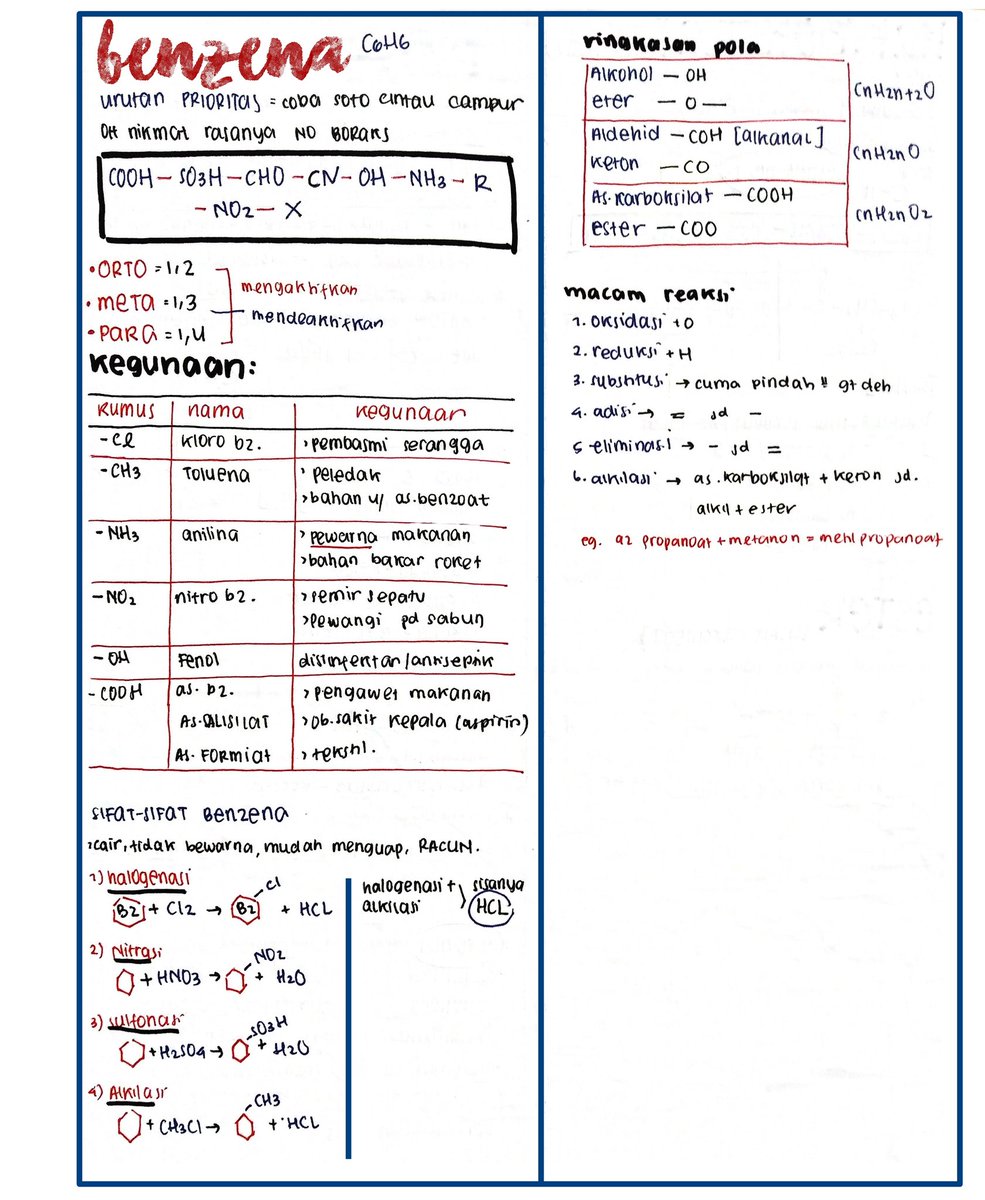 benzena C6H6
urutan PRIORITAS = coba soto cintau campur
OH nikmat rasanya NO BORAKS
COOH – SO3H – CHO – CN – OH – NH3 – R
– NO2 – X
• ORTO = 1,2
• meta = 1,3
• para = 1,4
mengaktifkan
mendeaktifkan
Kegunaan:
RUMUS nama kegunaan
-Cl kloro bz. > pembasmi serangga
-CH3 Toluena > peledak
> bahan u/ as.benzoat
-NH3 anilina > pewarna makanan
> bahan bakar roket
-NO2 nitro bz. > semir sepatu
> pewangi pd sabun
-OH Fenol disinfektan/antisepik
-COOH as. bz. > pengawet makanan
AS. SALISILAT > ob. sakit kepala (aspirin)
AS. FORmiat > tekstil.
SIFAT-SIFAT Benzena
> cair, tidak bewarna, mudah menguap, RACUN.
1) halogenasi
Bz + Cl2 → Bz Cl + HCL
2) Nitrasi
+ HNO3 → NO2 + H2O
3) sulfonasi
+ H2SO4 → SO3H + H2O
4) Alkilasi
+ CH3Cl → CH3 + HCL
halogenasi + sisanya
alkilasi HCL
ringkasan pola
Alkohol – OH
eter – O – CnH2n+2O
Aldehid – COH [alkanal]
keton – CO CnH2nO
As.karboksilat – COOH
ester – COO CnH2nO2
macam reaksi
1. oksidasi +O
2. reduksi + H
3. substitusi → cuma pindah" gt deh
4. adisi → = jd –
5 eliminasi → – jd =
6. alkilasi → as.karboksilat + keton jd.
alkil + ester
eg. az propanoat + metanon = metil propanoat